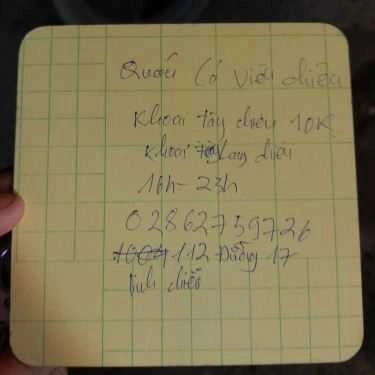 Quán Cô Viên chiên
Khoai tây chiên 10K
Khoai lang chiên
16h - 23h
02862759726
112 Đường 17
linh chiểu